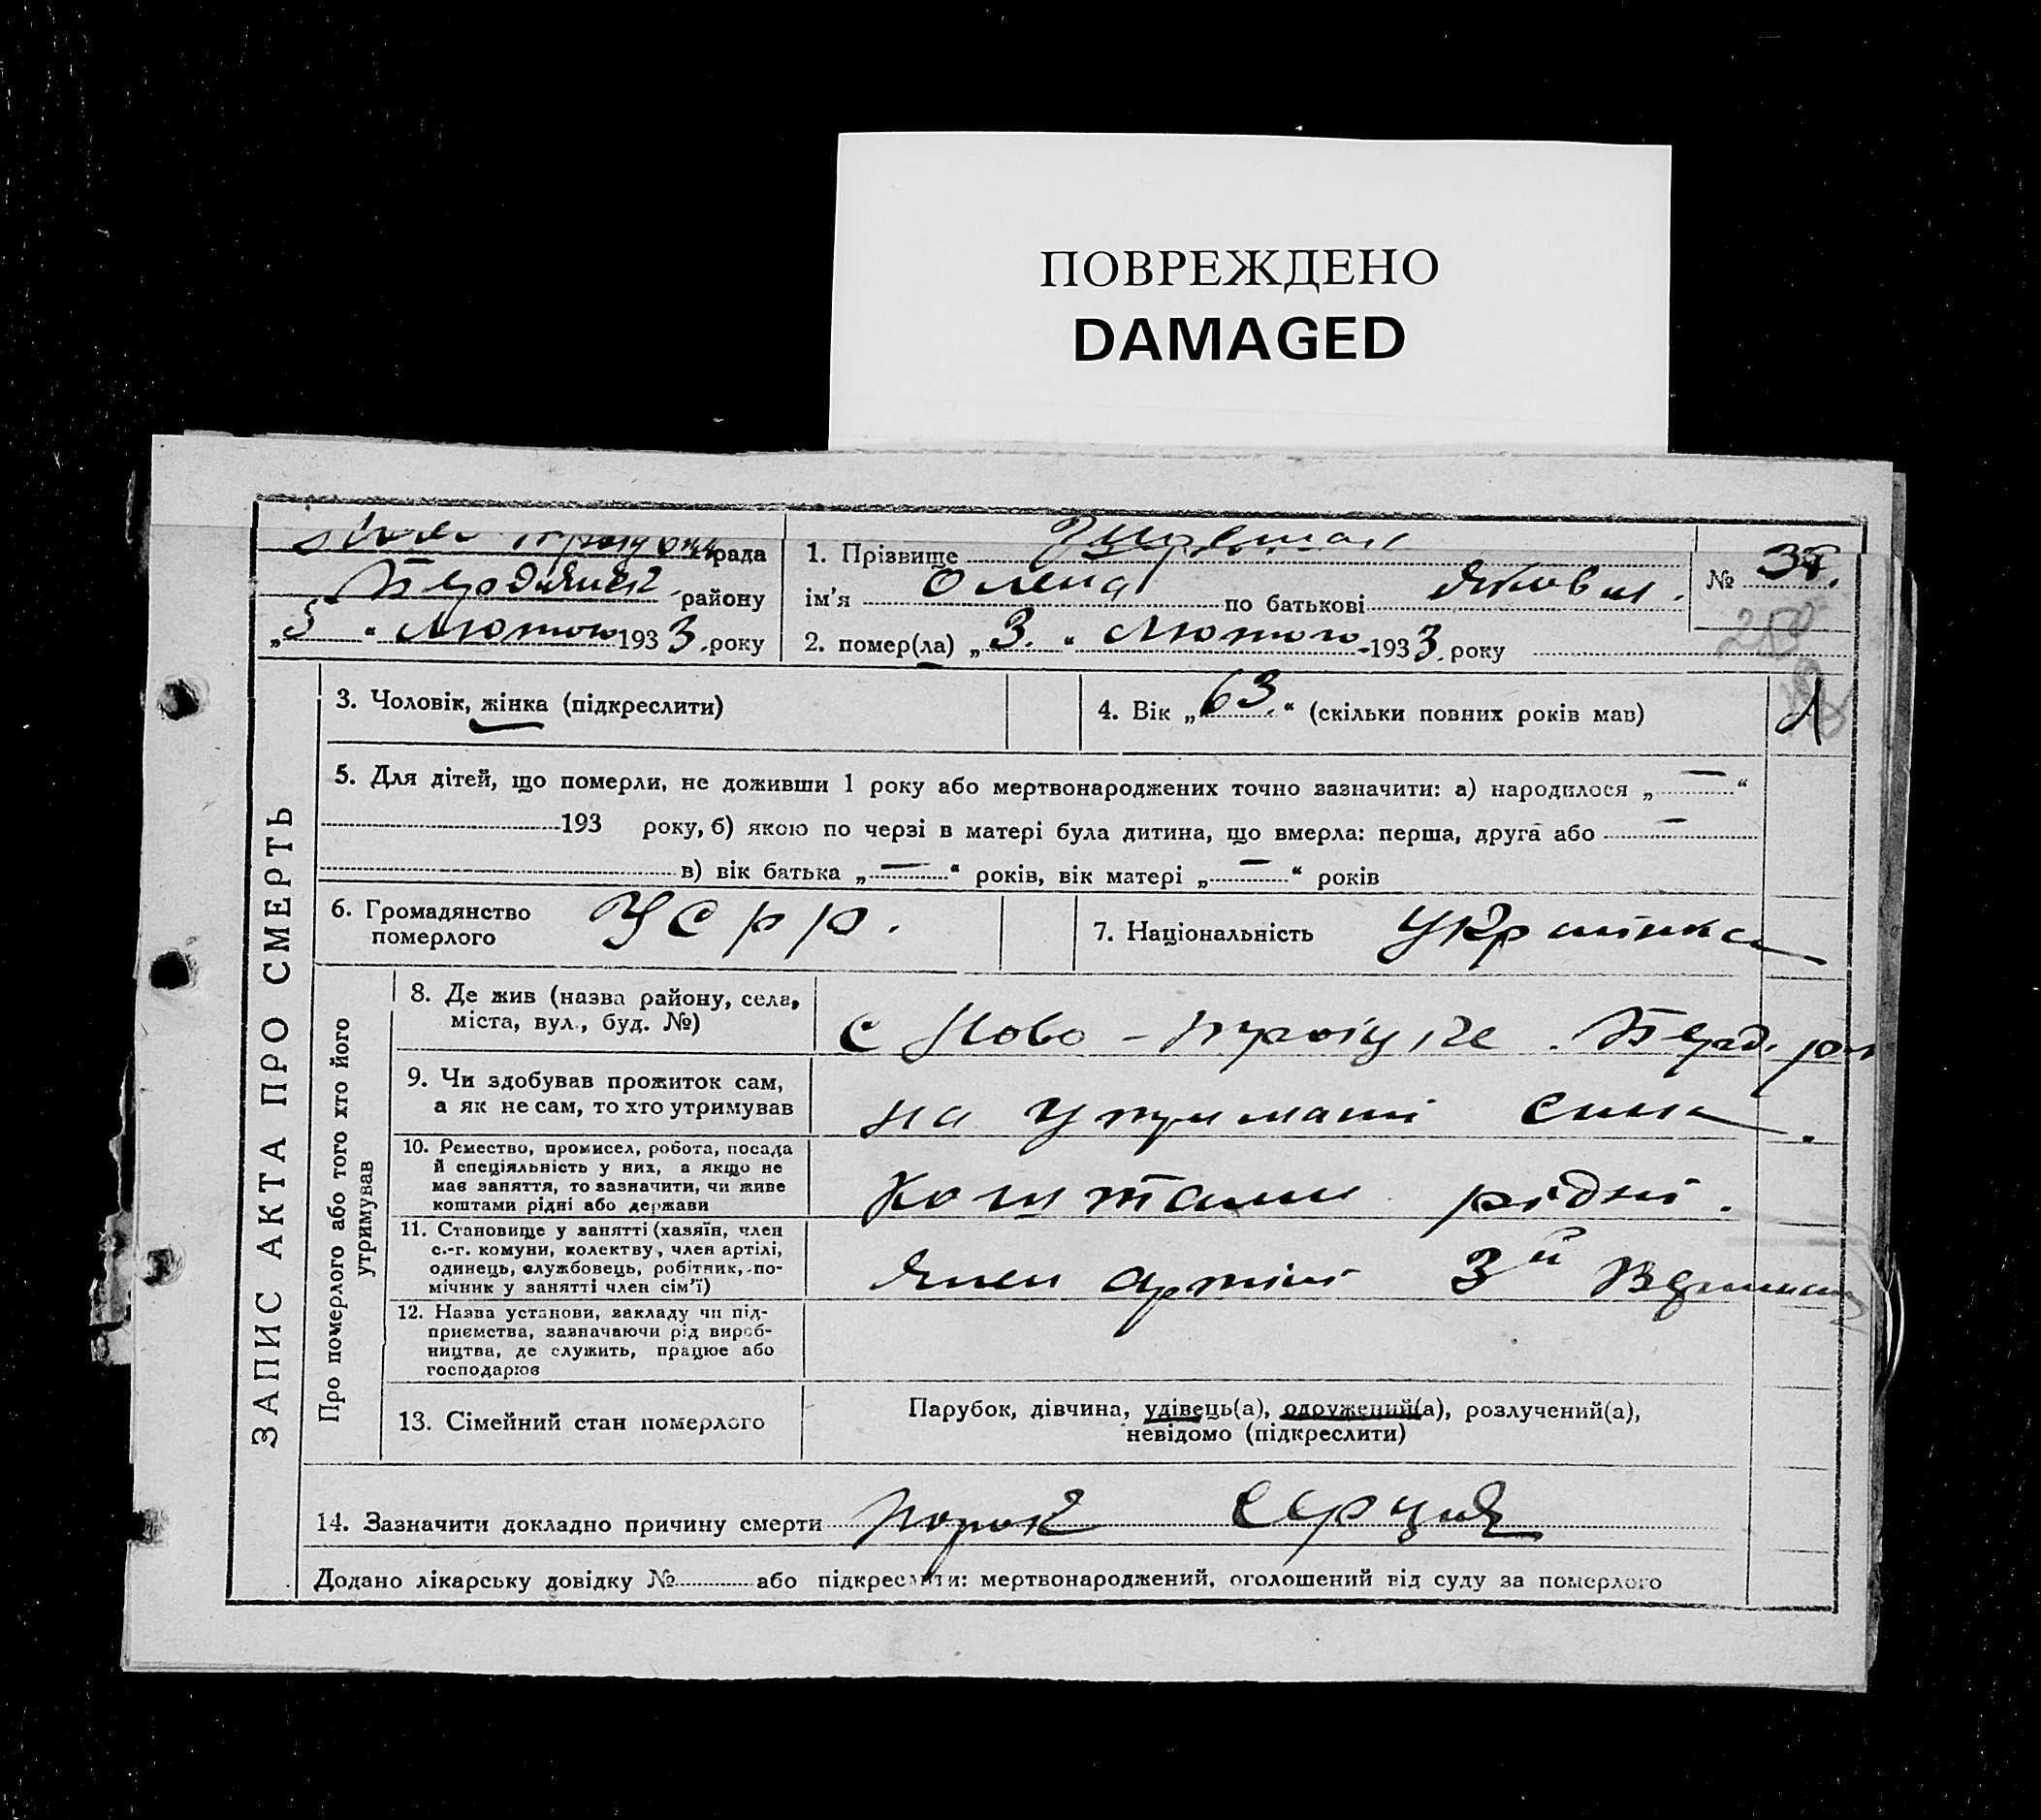 ПОВРЕЖДЕНО
DAMAGED
рада
Бердянськ району
„5“ Лютого 1933 року
1. Прізвище
ім'я Олена по батькові Яковл.
2. помер(ла) „3.“ Лютого 1933. року
№ 38.
ЗАПИС АКТА ПРО СМЕРТЬ
3. Чоловік, жінка (підкреслити)
4. Вік „63.“ (скільки повних років мав)
5. Для дітей, що померли, не доживши 1 року або мертвонароджених точно зазначити: а) народилося „—“
193 року, б) якою по черзі в матері була дитина, що вмерла: перша, друга або —
в) вік батька „—“ років, вік матері „—“ років
6. Громадянство
померлого
УСРР.
7. Національність Українка
Про померлого або того хто його
утримував
8. Де жив (назва району, села,
міста, вул., буд. №)
с Ново-Троіцьке. Берд. рон
9. Чи здобував прожиток сам,
а як не сам, то хто утримував
на утриманні сина.
10. Ремество, промисел, робота, посада
й спеціяльність у них, а якщо не
має заняття, то зазначити, чи живе
коштами рідні або держави
коштами рідні.
11. Становище у занятті (хазяїн, член
с.-г. комуни, колектву, член артілі,
одинець, службовець, робітник, по-
мічник у занятті член сім'ї)
член артілі 3й
12. Назва установи, закладу чи під-
приємства, зазначаючи рід вироб-
ництва, де служить, працює або
господарює
13. Сімейний стан померлого
Парубок, дівчина, удівець(а), одружений(а), розлучений(а),
невідомо (підкреслити)
14. Зазначити докладно причину смерти порок серця
Додано лікарську довідку № або підкреслити: мертвонароджений, оголошений від суду за померлого